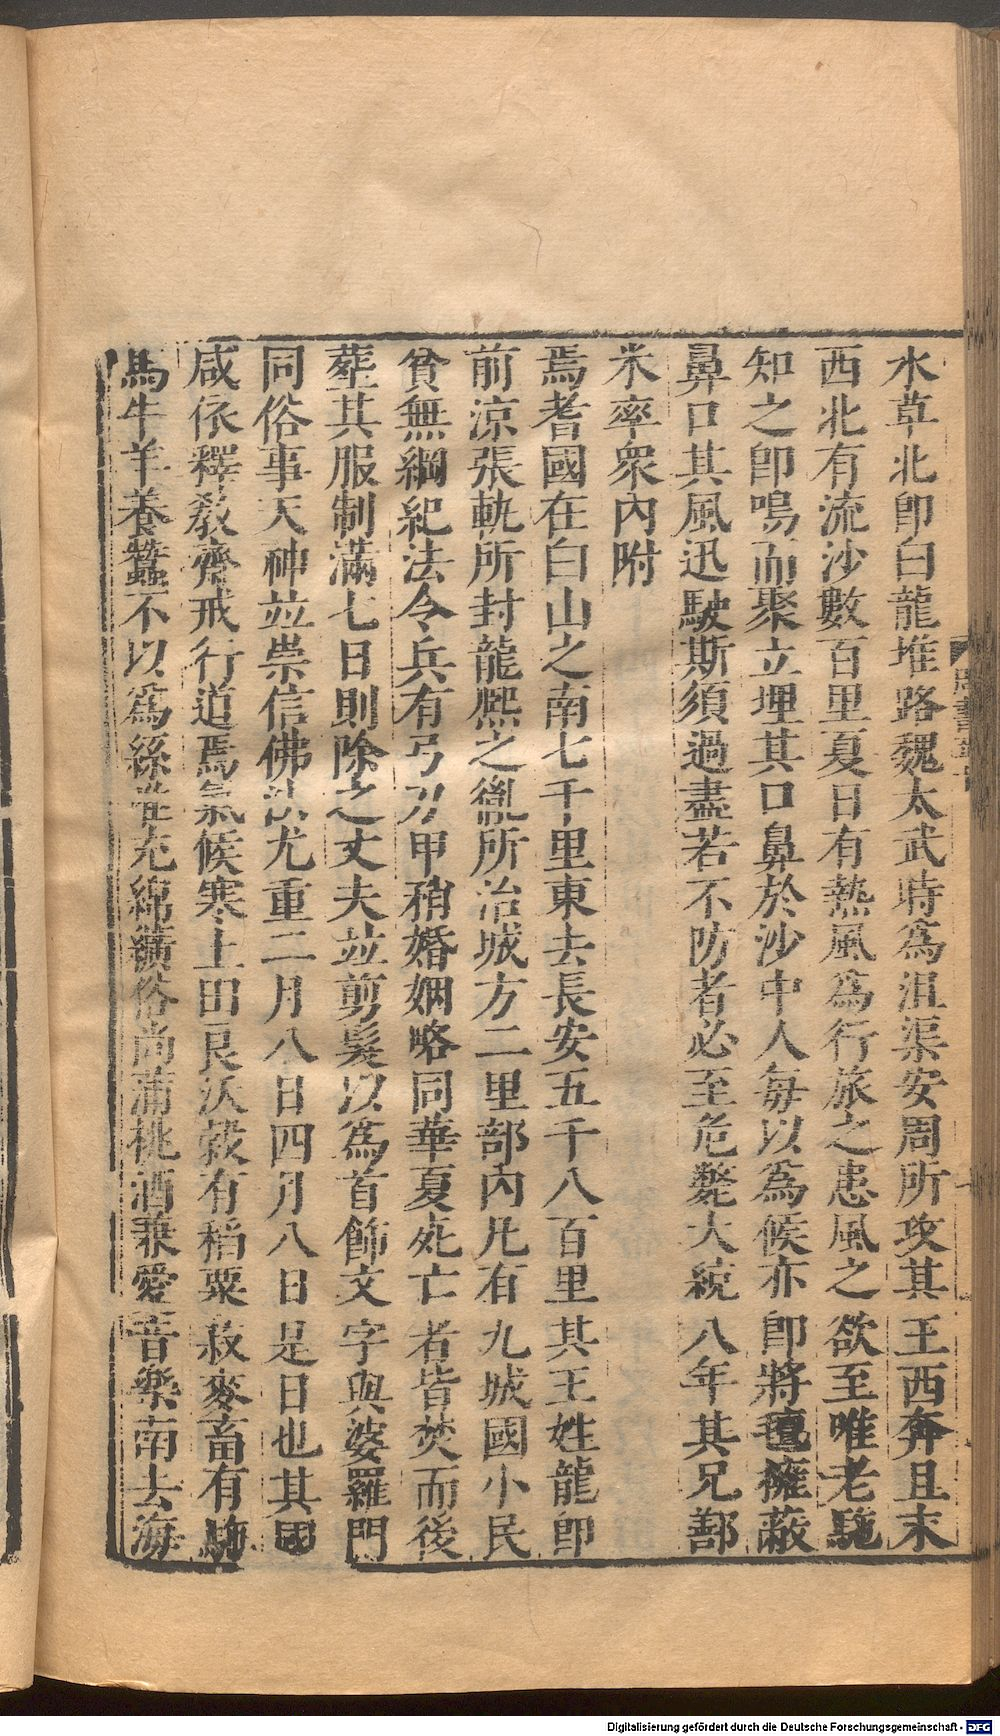 水草北卽白龍堆路魏太武時爲沮渠安周所攻其王西奔且末
西北有流沙數百里夏日有熱風爲行旅之患風之欲至唯老駝
知之卽鳴而聚立埋其口鼻於沙中人每以爲候亦卽將氊擁蔽
鼻口其風迅駛斯須過盡若不防者必至危斃大統八年其兄鄯
米率衆內附
焉耆國在白山之南七千里東去長安五千八百里其王姓龍卽
前涼張軌所封龍熙之胤所治城方二里部內凡有九城國小民
貧無綱紀法令兵有弓刀甲矟婚姻略同華夏死亡者皆焚而後
葬其服制滿七日則除之丈夫並剪髮以爲首飾文字與婆羅門
同俗事天神並崇信佛法尤重二月八日四月八日是日也其國
咸依釋敎齋戒行道焉氣候寒土田良沃穀有稻粟菽麥畜有駝
馬牛羊養蠶不以爲絲唯充綿纊俗尚蒲桃酒兼愛音樂南去海
周書
Digitalisierung gefördert durch die Deutsche Forschungsgemeinschaft - DFG